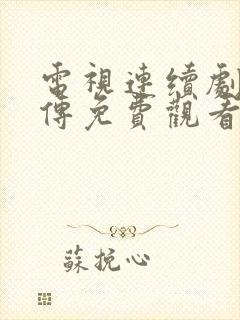 電視連續劇
傳免費觀看
蘇挽心